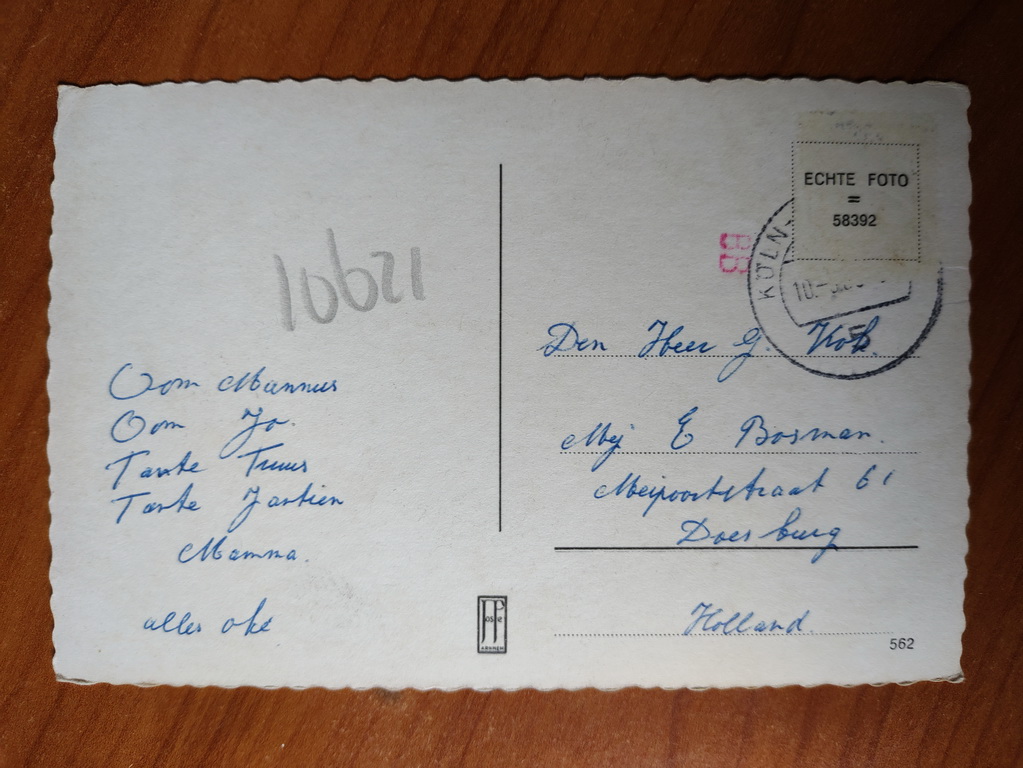 10621
Oom Mannus
Oom Jo.
Tante Truus
Tante Jantien
Mamma.
alles oke
ECHTE FOTO
=
58392
BB
KÖLN
10.
Den Heer G. Kok.
Mej E Bosman.
Meipoortstraat 61
Doesburg
Holland
562